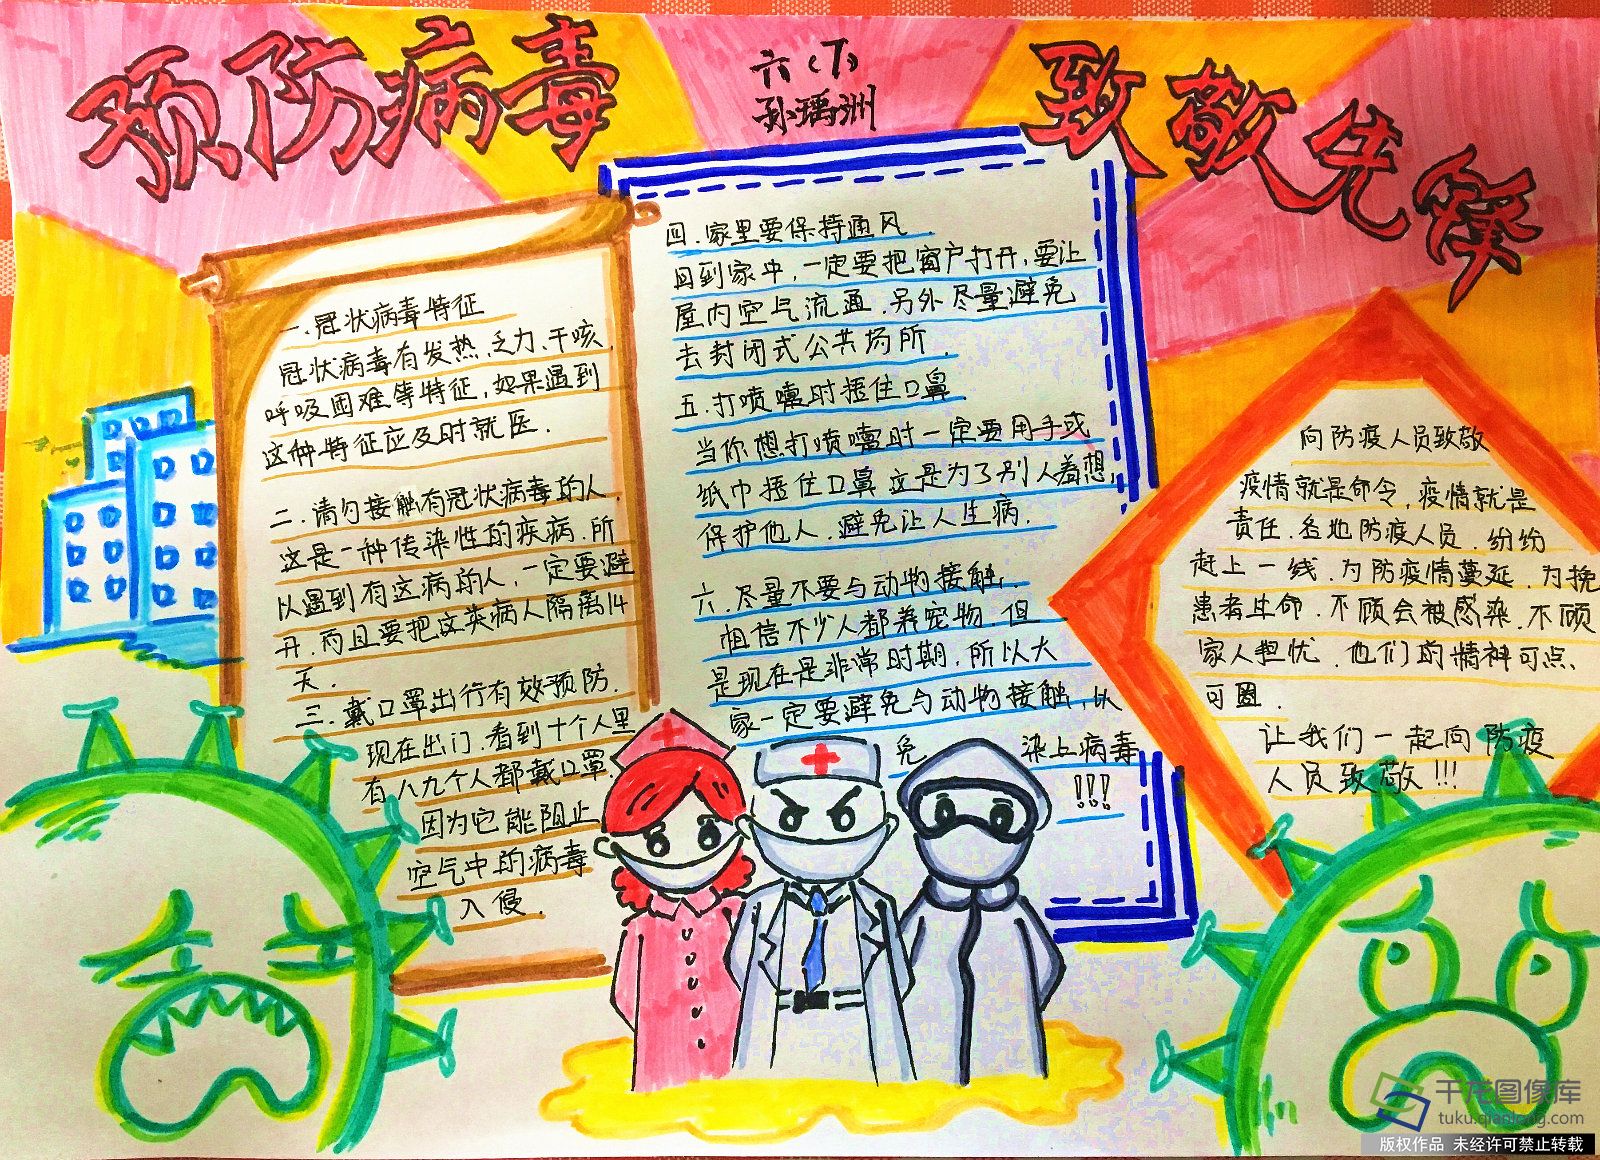 预防病毒
六（7）
孙瑀洲
致敬先锋
一.冠状病毒特征
冠状病毒有发热.乏力.干咳.
呼吸困难等特征，如果遇到
这种特征应及时就医.
二.请勿接触有冠状病毒的人.
这是一种传染性的疾病.所
以遇到有这病的人，一定要避
开.而且要把这类病人隔离14
天.
三.戴口罩出行有效预防.
现在出门.看到十个人里
有八九个人都戴口罩.
因为它能阻止
空气中的病毒
入侵.
四.家里要保持通风.
回到家中，一定要把窗户打开，要让
屋内空气流通.另外尽量避免
去封闭式公共场所.
五.打喷嚏时捂住口鼻
当你想打喷嚏时一定要用手或
纸巾捂住口鼻 这是为了别人着想，
保护他人.避免让人生病.
六.尽量不要与动物接触.
相信不少人都养宠物.但
是现在是非常时期.所以大
家一定要避免与动物接触，以
免 染上病毒
!!!
向防疫人员致敬
疫情就是命令，疫情就是
责任.各地防疫人员.纷纷
赶上一线.为防疫情蔓延.为挽
患者生命.不顾会被感染.不顾
家人担忧.他们的精神可点、
可圈.
让我们一起向防疫
人员致敬!!!
千龙图像库
tuku.qianlong.com
版权作品 未经许可禁止转载